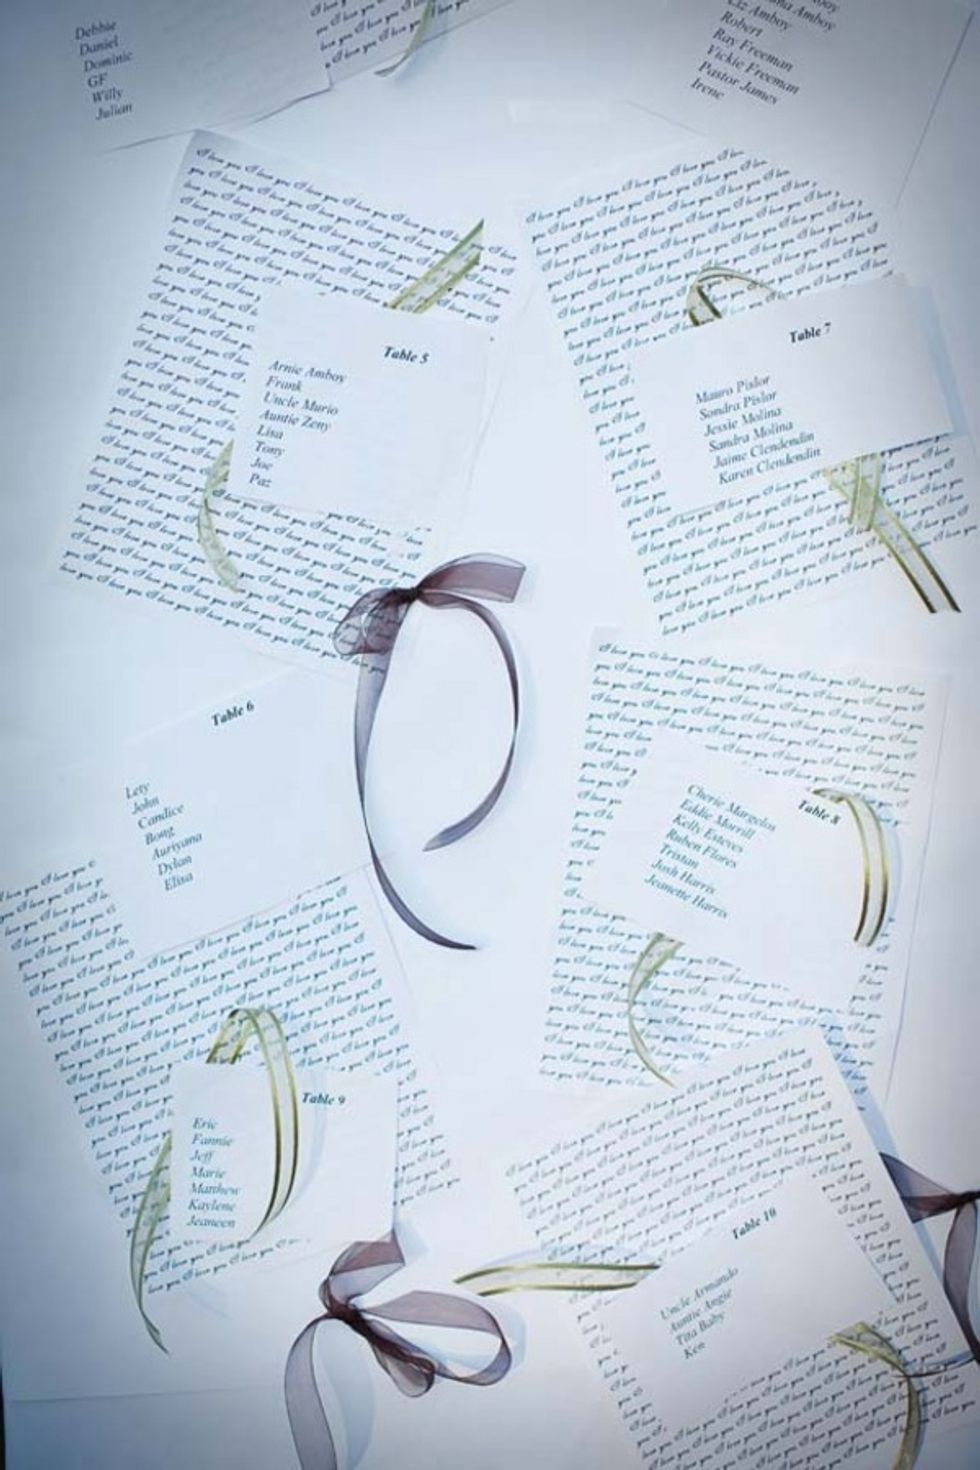 Debbie
Daniel
Dominic
GF
Willy
Julian
Liz Amboy
Robert
Ray Freeman
Vickie Freeman
Pastor James
Irene
Table 5
Arnie Amboy
Frank
Uncle Murio
Auntie Zeny
Lisa
Tony
Joe
Paz
Table 7
Mauro Pislor
Sondra Pislor
Jessie Molina
Sandra Molina
Jaime Clendendin
Karen Clendendin
Table 6
Lety
John
Candice
Bong
Auriyana
Dylan
Elisa
Table 8
Cherie Margelos
Eddie Morrill
Kelly Esteves
Ruben Flores
Tristan
Josh Harris
Jeanette Harris
Table 9
Eric
Fannie
Jeff
Marie
Matthew
Kaylene
Jeaneen
Table 10
Uncle Armando
Auntie Angie
Tita Baby
Ken
I love you I love you I love you I love you I love you